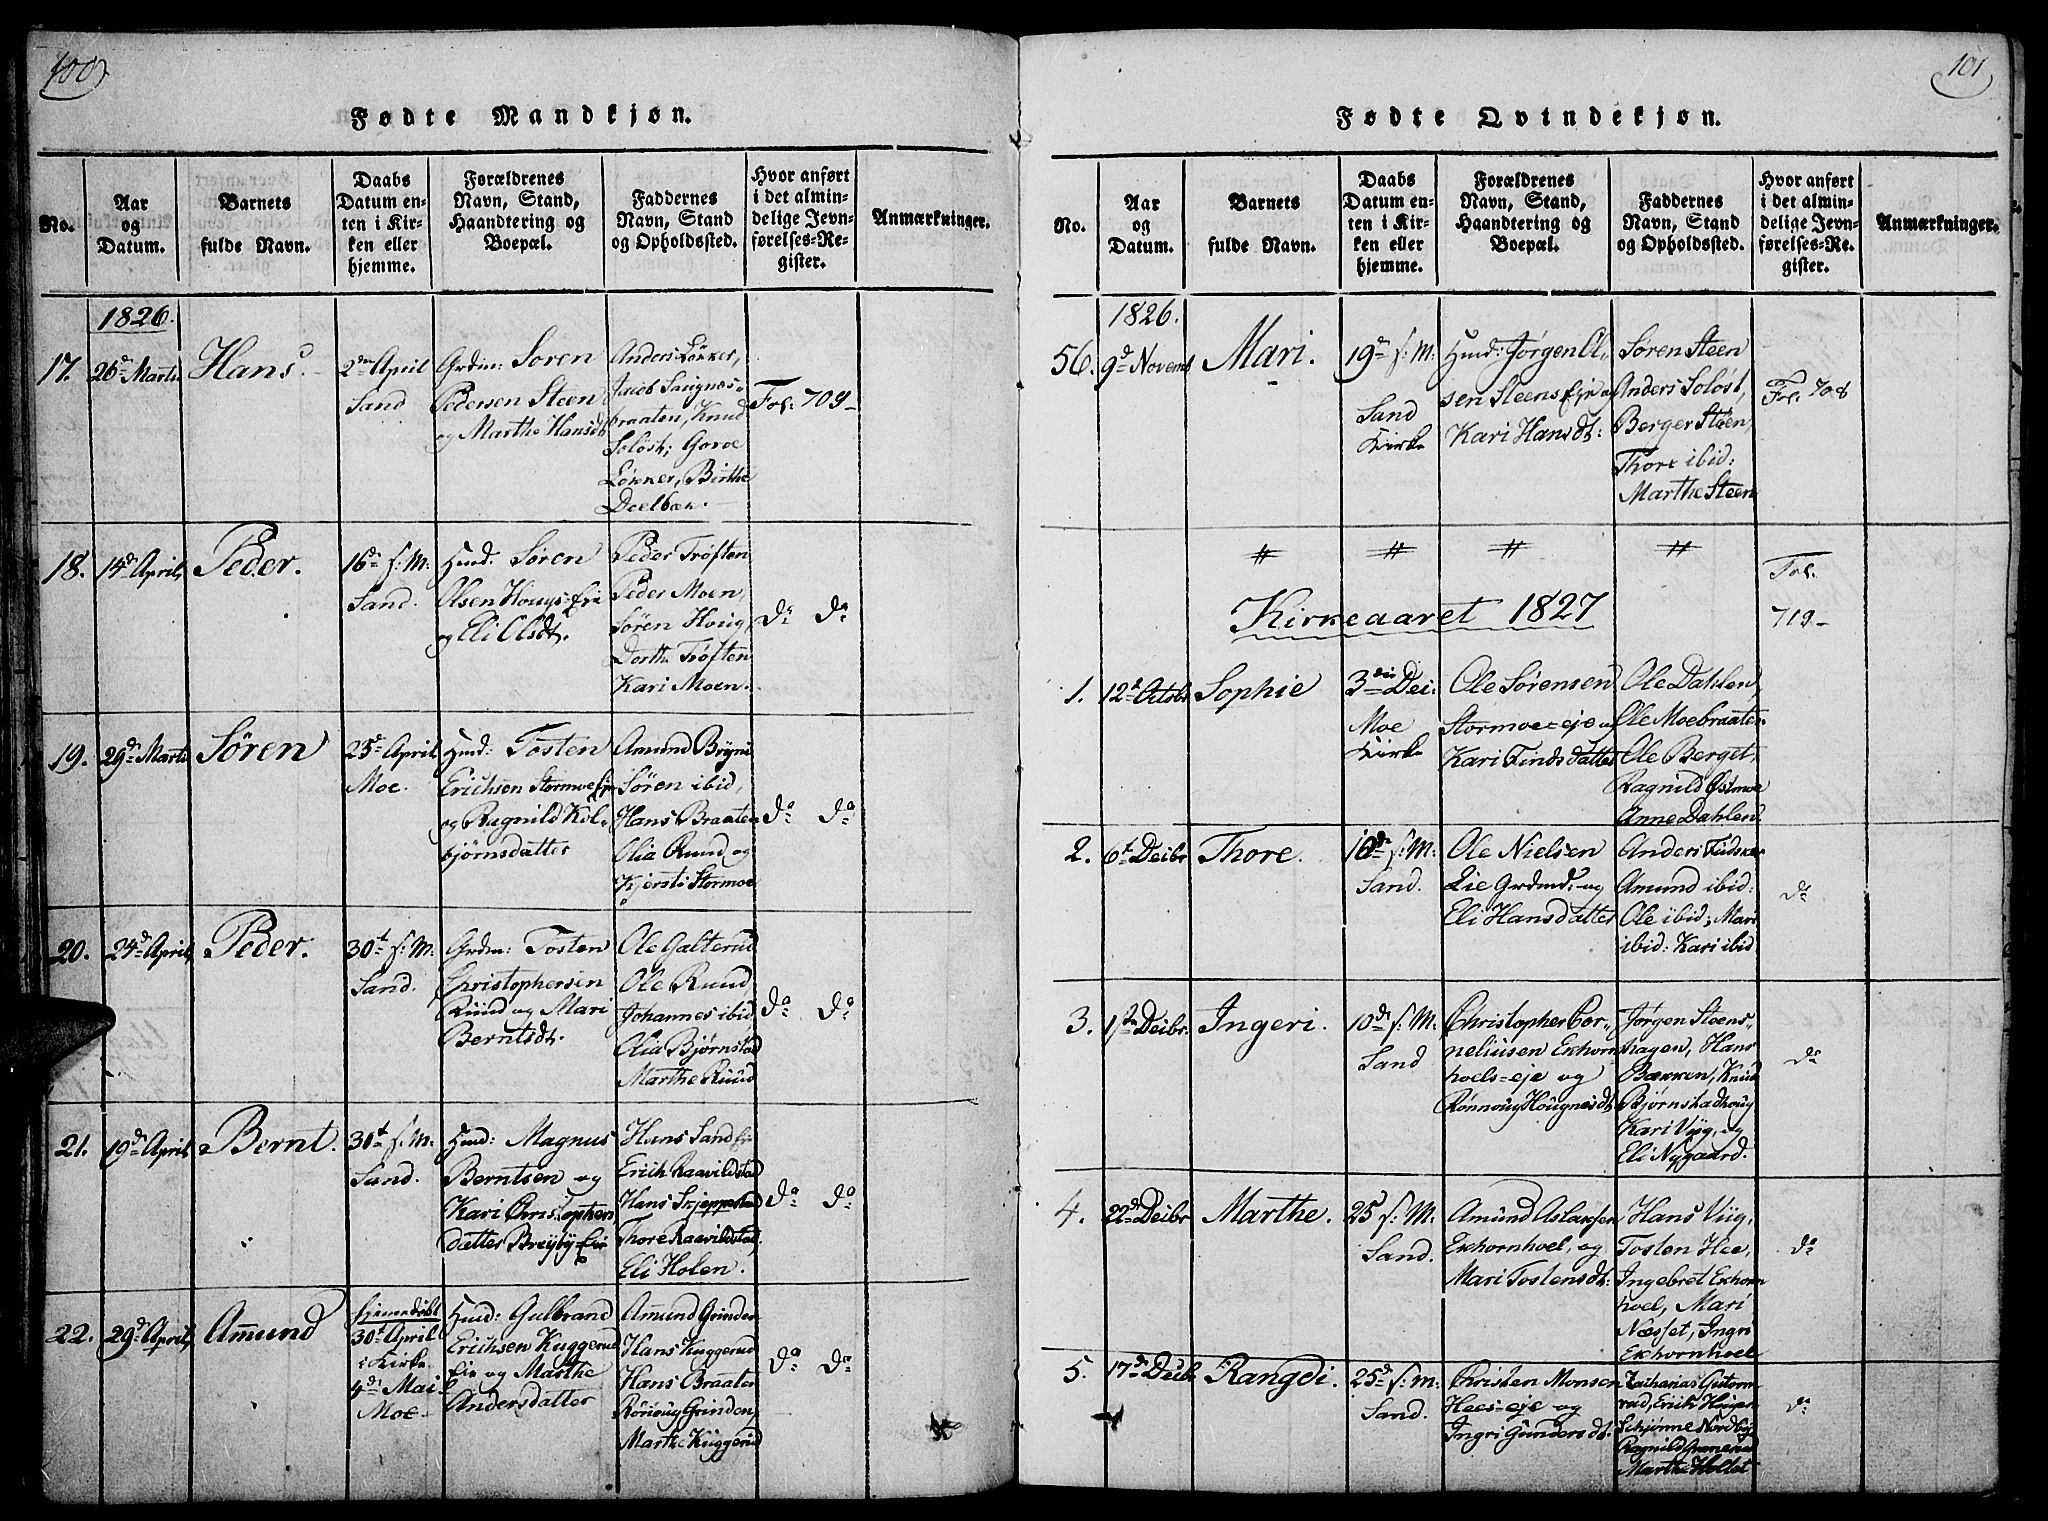 100)
Fødte Mandkjøn.
No.
Aar
og
Datum.
Barnets
fulde Navn.
Daabs
Datum en-
ten i Kir-
ken eller
hjemme.
Forældrenes
Navn, Stand,
Haandtering og
Boepæl.
Faddernes
Navn, Stand
og Opholdssted.
Hvor anført
i det almin-
delige Jevn-
førelses-Re-
gister.
Anmærkninger.
1826.
17.
26d Marts
Hans.
2den April
Sand
Grdm: Soren
Pedersen Steen
og Marthe Hansdt
Anders Løkker,
Jacob
braaten, Knud
Soløst; Gorve
Løkker, Birthe
Deelbæk.
Fol: 709
18.
14d April
Peder.
16d f: M:
Sand.
Hmd: Søren
Olsen Hougs-Eie
og Eli Olsdt.
Peder Trøften
Peder Moen,
Søren Houg,
Dorthe Trøften
Kari Moen.
do do
19.
29d Marts
Søren
23d April
Moe.
Hmd: Tosten
Erichsen Stormoe Eje
og Ragnild Kol-
bjørnsdatter
Amund Bryni
Søren ibid,
Hans Braaten
Olia Ruud og
Kjersti Stormoe
do do
20.
24d April
Peder.
30t f: M:
Sand.
Grdm: Tosten
Christophersen
Ruud og Mari
Berntsdt.
Ole Galterud
Ole Ruud,
Johannes ibid
Olia Bjørnstad
Marthe Ruud
do do
21.
19d April
Bernt.
30t f: M:
Sand.
Hmd: Magnus
Berntsen og
Kari Christophers
datter Breyby-Eie
Hans Sand
Erich Raavildstad
Hans Skjeppestad
Thore Raavildstad,
Eli Holen.
do do
22.
29d April
Amund
hjemmedøbt
30t April
i Kirke
4de Mai
Moe.
Hmd: Gulbrand
Erichsen Kuggerud
Eie og Marthe
Andersdatter
Amund Grinden
Hans Kuggerud
Hans Braaten
Rønnoug Grinden,
Marthe Kuggerud
do do
101
Fødte Qvindekjøn.
No.
Aar
og
Datum.
Barnets
fulde Navn.
Daabs
Datum en-
ten i Kir-
ken eller
hjemme.
Forældrenes
Navn, Stand,
Haandtering og
Boepæl.
Faddernes
Navn, Stand
og Opholdssted.
Hvor anført
i det almin-
delige Jevn-
førelses-Re-
gister.
Anmærkninger.
1826.
56.
9d Novemb
Mari.
19de f: M:
Sand
Kirke
Hmd: Jørgen Ol-
sen Steens Eje og
Kari Hansdt:
Søren Steen
Anders Soløst,
Berger Steen,
Thore ibid:
Marthe Steen
Fol. 708
〃 〃 〃 〃
Kirkeaaret 1827
Fol.
719
1.
12t Octobr
Sophie
3die Dei:
Moe
Kirke
Ole Sørensen
Stormoe-eje og
Kari Findsdatter
Ole Dahlen,
Ole Moebraaten
Ole Berget,
Ragnild Østmoe
Anne Dahlen.
2.
6t Deibr
Thore.
10de f: M:
Sand.
Ole Nielsen
Lie Grdmd: og
Eli Hansdatter
Anders Fudsker
Amund ibid:
Ole ibid; Mari
ibid: Kari ibid
do
3.
1ste Deibr.
Ingeri.
10de f: M:
Sand
Christopher Cor-
neliusen Exhorn
hoels-eje og
Rønnoug Hougnesdt
Jørgen Steens-
hagen, Hans
Bækken, Knud
Bjørnstadhoug
Kari Viig, og
Eli Nygaard.
do
4.
22de Deibr
Marthe.
25 f: M:
Sand.
Amund Aslaksen
Exhornhoel, og
Mari Tostensdt:
Hans Viig,
Tosten Hee,
Ingebret Exhorn
hoel, Mari
Næsset, Ingri
Exhornhoel
do
5.
17de Deibr
Rangdi.
25d f: M:
Sand.
Christen Monsen
Hees-eje og
Ingri Gundersdt.
Zacharias Gutorm
rud, Erik Haugen
Schjønne Nordby
Ragnild
Marthe Holset
do